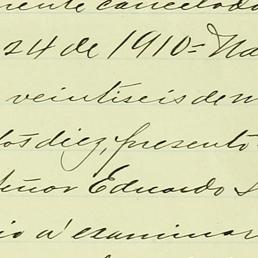 mente cancelado
24 de 1910 = Na
veintiseis de m
tos diez, presentó
eñor Eduardo S
io á examinar